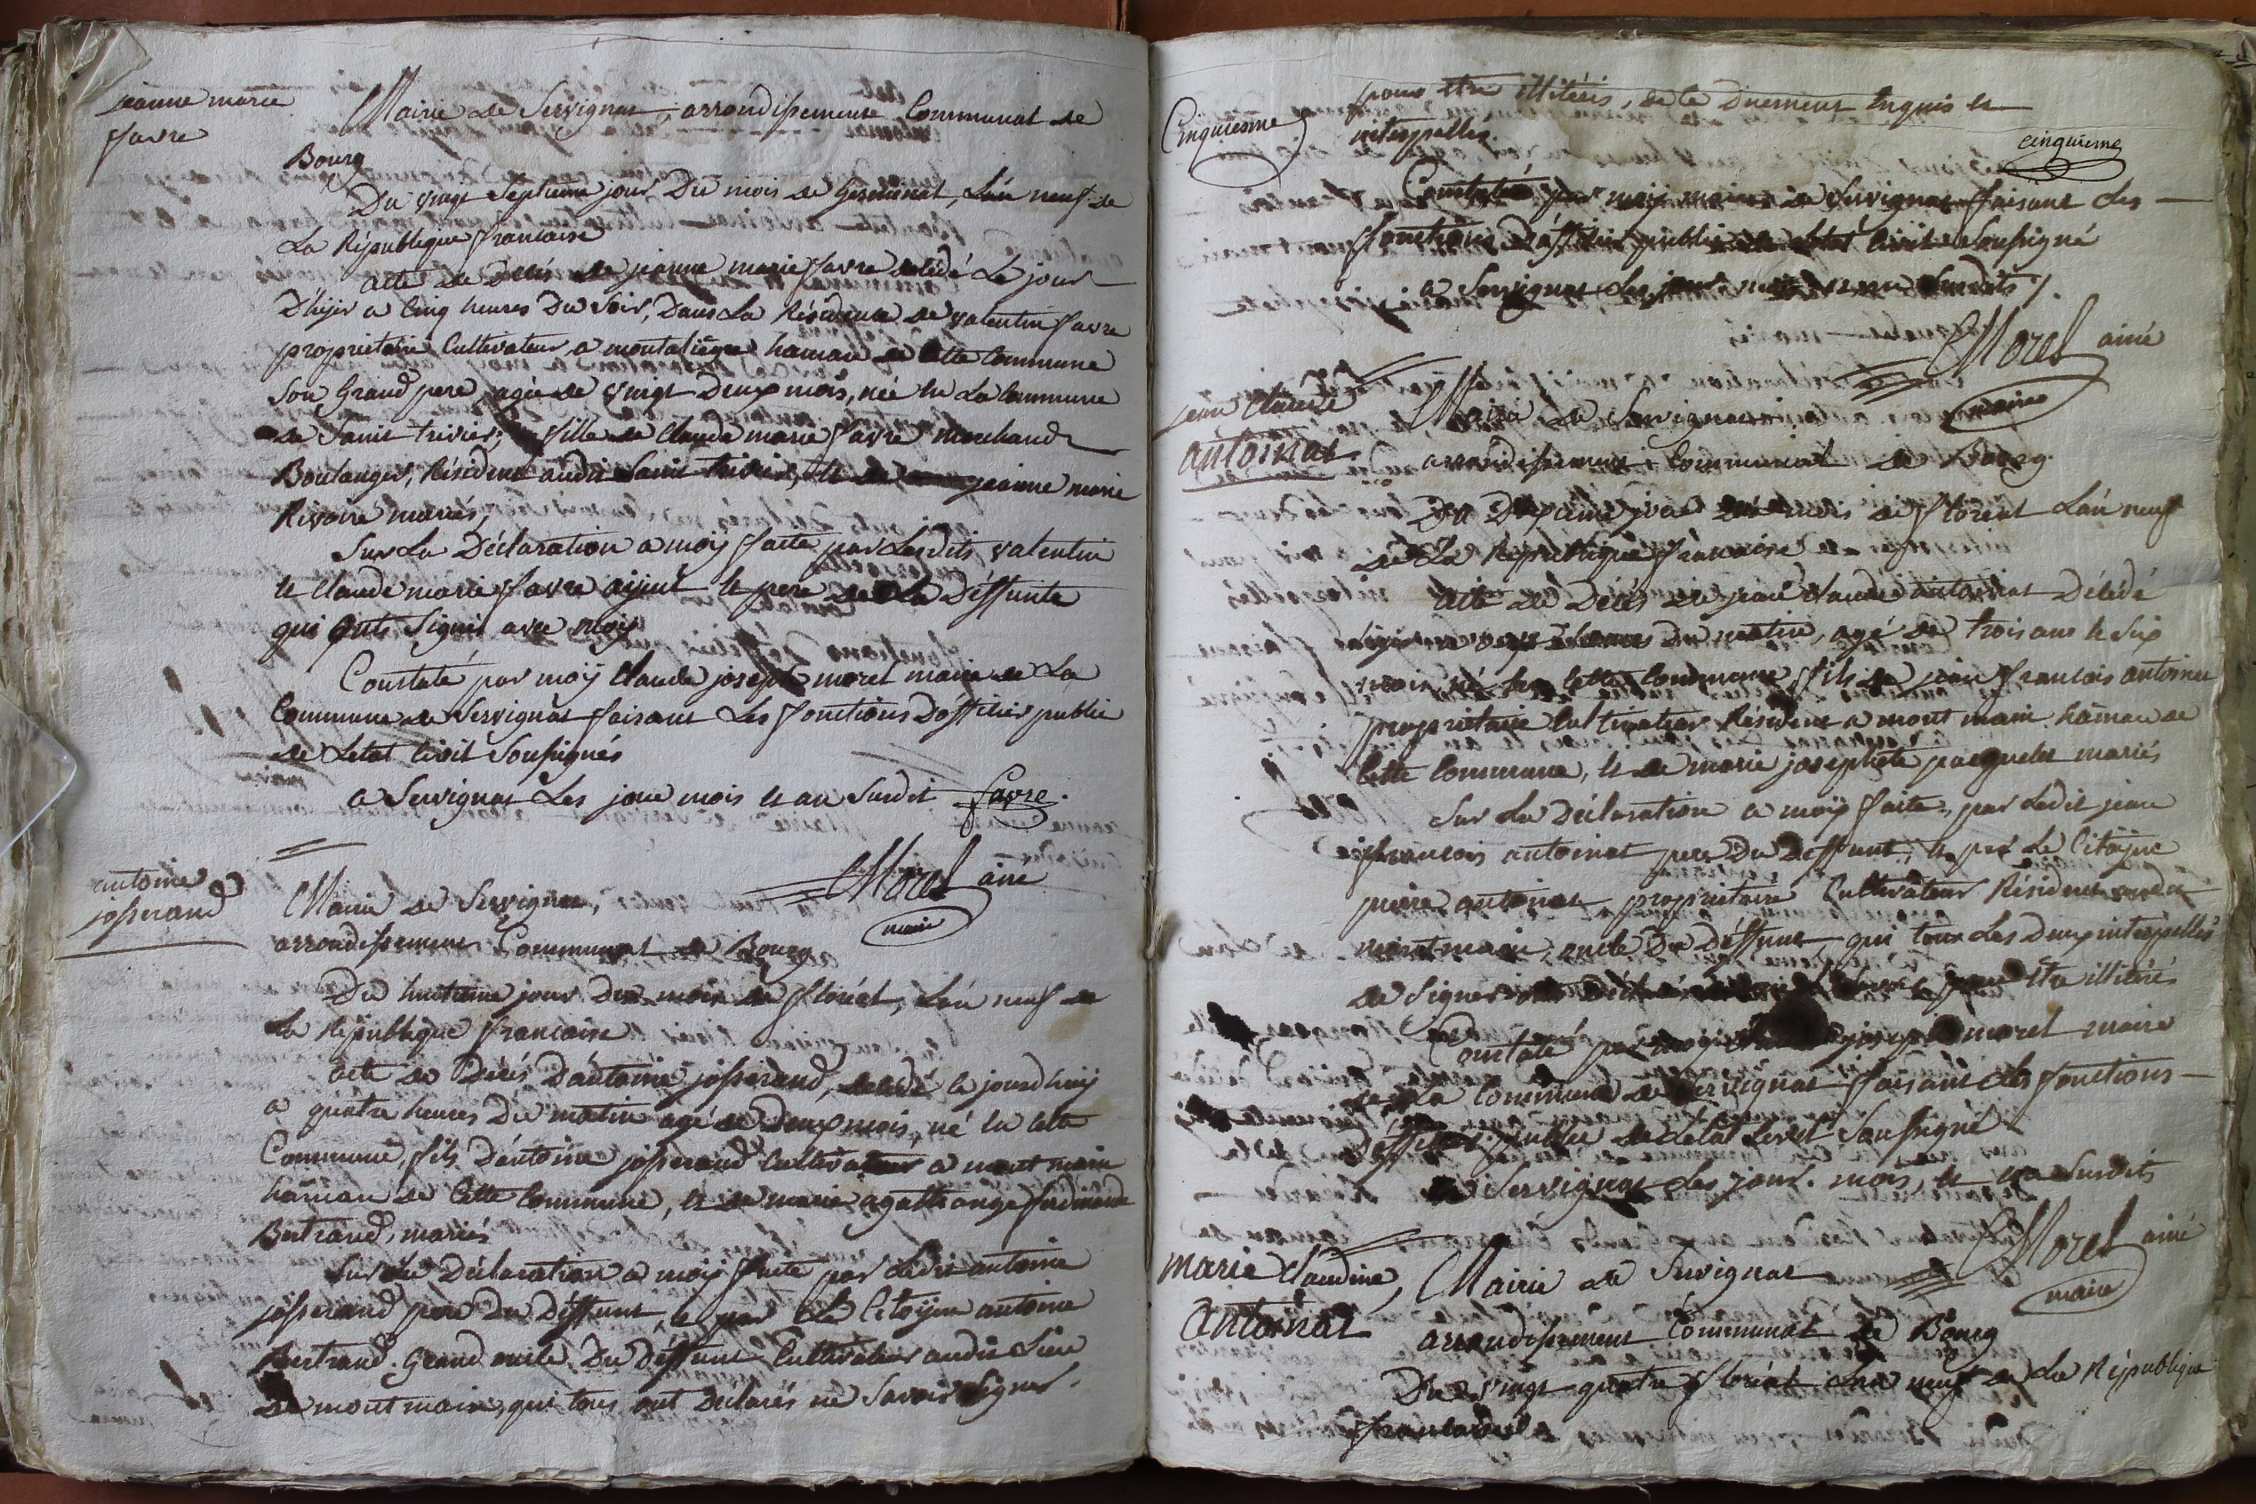 jeanne marie
favre
Mairie de Servignat, arrondissement Communal de
Bourg
Du vingt Septieme jour Du mois de Germinal, L'an neuf de
La République francaise
acte de Décés de jeanne marie favre décédé Le jour
D'hÿer a Cinq heures Du Soir, Dans La Résidence de valentin favre
proprietaire Cultivateur a hamau de Cette Commune
Son Grand pere, agée de vingt Deux mois, née en La Commune
de Saint trivier, fille de Claude marie favre marchand
Boulanger, Résident audit Saint trivier, et de jeanne marie
Rivoire mariés,
Sur La Déclaration a moÿ faite par Lesdits valentin
et Claude marie favre aÿeul et pere de La Déffunte
qui ont Signés avec moÿ
Constaté par moÿ Claude joseph morel maire de La
Commune de Servignat faisant Les fonctions D'officier public
de Letat Civil Soussignés
a Servignat Les jour mois et an Susdit favre
Morel ainé
maire
antoine
josserand
Mairie de Servignat,
arrondissement Communal de Bourg
Du huitieme jour Du mois de floréal, L'an neuf de
La République francaise
acte de Décés D'antoine josserand, décédé le jourd'huÿ
a quatre heures Du matin agé de Deux mois, né en Cette
Commune, fils D'antoine josserand Cultivateur a mont main
hamau de Cette Commune, et de marie agathange
Bertrand, mariés
Sur La Déclaration a moÿ faite par Ledit antoine
josserand pere Du Déffunt, et par Le Citoÿen antoine
Bertrand Grand oncle Du Déffunt Cultivateur audit Lieu
De mont main, qui tous ont Déclarés ne Savoir Signer
Cinquiesme
pour être illitérés, de ce Duement Enquis et
interpellés
cinquieme
Constaté par moÿ maire de Servignat faisant Les
fonctions D'officier public de Letat Civil Soussigné
a Servignat Les jour mois et an Susdits
Morel ainé
maire
jean Claude
antoinat
Mairie de Servignat
arrondissement Communal de Bourg
Du Dixieme jour Du mois de floréal L'an neuf
de La République francaise
acte de Décés de jean Claude antoinat Décédé
heures Du matin, agé de trois ans et Six
mois, né en Cette Commune fils de jean francois antoinat
proprietaire Cultivateur Résident a mont main hamau de
Cette Commune, et de marie josephete pacquelet mariés
Sur La Déclaration a moÿ faite, par Ledit jean
francois antoinat pere Du Déffunt, et par Le Citoÿen
pierre antoinat proprietaire Cultivateur Résident audit
mont main, oncle Du Déffunt, qui tous Les Deux interpellés
de Signer ont Déclaré ne Savoir pour être illitérés
Constaté par moÿ Claude joseph morel maire
de La Commune de Servignat faisant Les fonctions
D'officier public de Letat Civil Soussigné
a Servignat Les jour mois et an Susdits
Morel ainé
maire
marie Claudine
Antoinat
Mairie de Servignat
arrondissement Communal de Bourg
Du vingt quatre floréal L'an neuf de La République
francaise